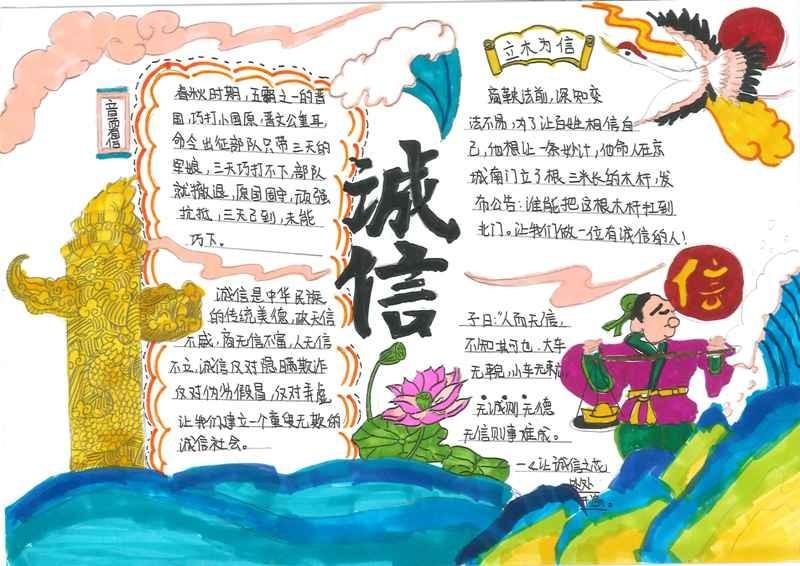 言而有信
春秋时期，五霸之一的晋
国，巧打小国原，晋文公重耳
命令出征部队只带三天的
军粮，三天巧打不下，部队
就撤退，原国固守，顽强
抗抵，三天已到，未能
巧下。
诚信是中华民族
的传统美德，政无信
不威，商无信不富，人无信
不立，诚信反对隐瞒欺诈
反对伪劣假冒，反对弄虚
让我们建立一个童叟无欺的
诚信社会。
诚信
立木为信
商鞅法前，深知变
法不易，为了让百姓相信自
己，他想让一条妙计，他命人在京
城南门立了根三米长的木杆，发
布公告：谁能把这根木杆扛到
北门。让我们做一位有诚信的人！
信
子曰：“人而无信，
不知其可也，大车
无輗，小车无軏，
无诚则无德
无信则事难成。
一《让诚信之花
处处